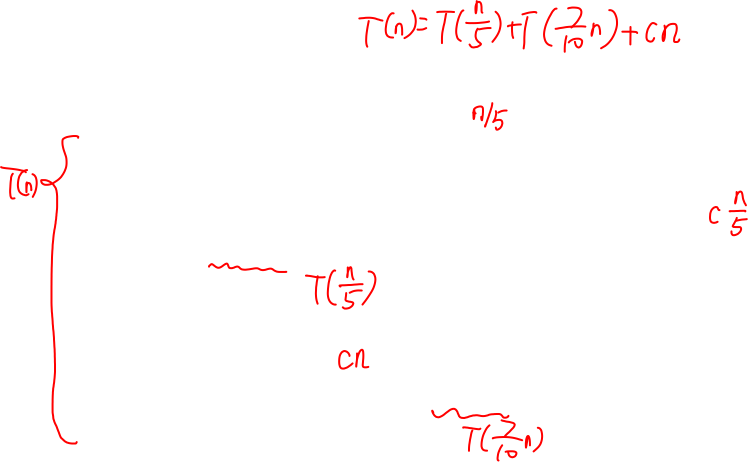 T(n)=T(n/5)+T(7/10 n)+cn
n/5
T(n)
c n/5
T(n/5)
cn
T(7/10 n)